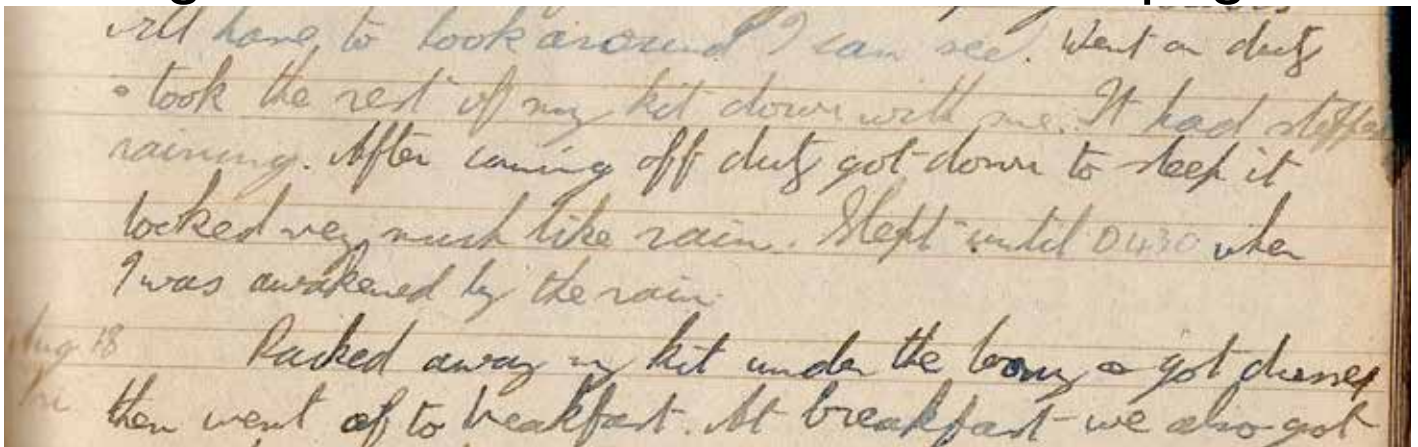 will have to look around I can see. Went on duty
& took the rest of my kit down with me. It had stopped
raining. After coming off duty got down to sleep it
looked very much like rain. Slept until 0430 when
I was awakened by the rain.
Aug 18 Packed away my kit under the & got dressed
Fri. then went off to breakfast. At breakfast we also got